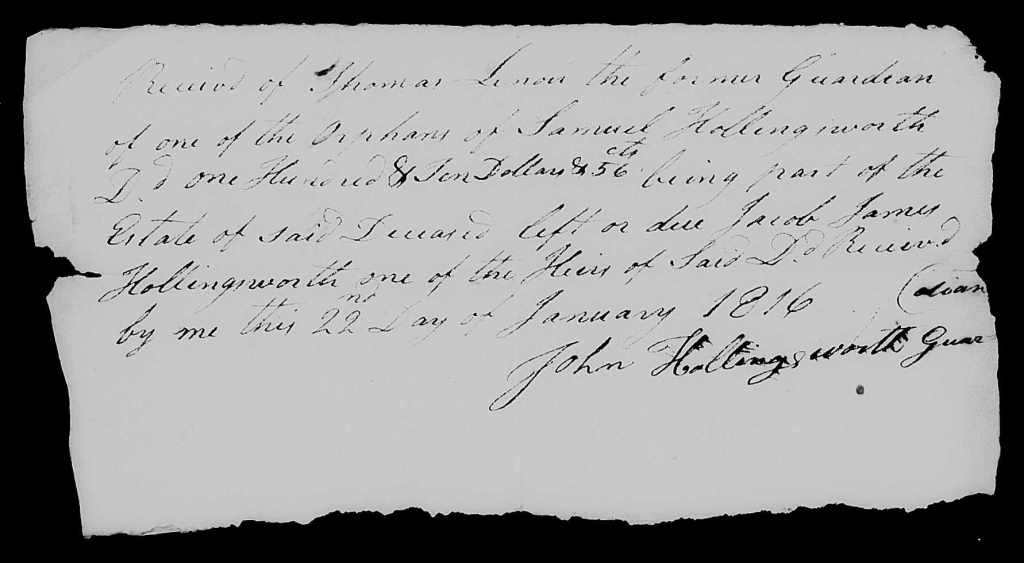 Receivd of Thomas Lenoir the former Guardian
of one of the Orphans of Samuel Hollingsworth
D.d one Hundred & Ten Dollars & 56 cts being part of the
Estate of said Deceased left or due Jacob James
Hollingsworth one of the Heirs of Said D.d Receivd
by me this 22nd Day of January 1816
(dian
John Hollingsworth Guar